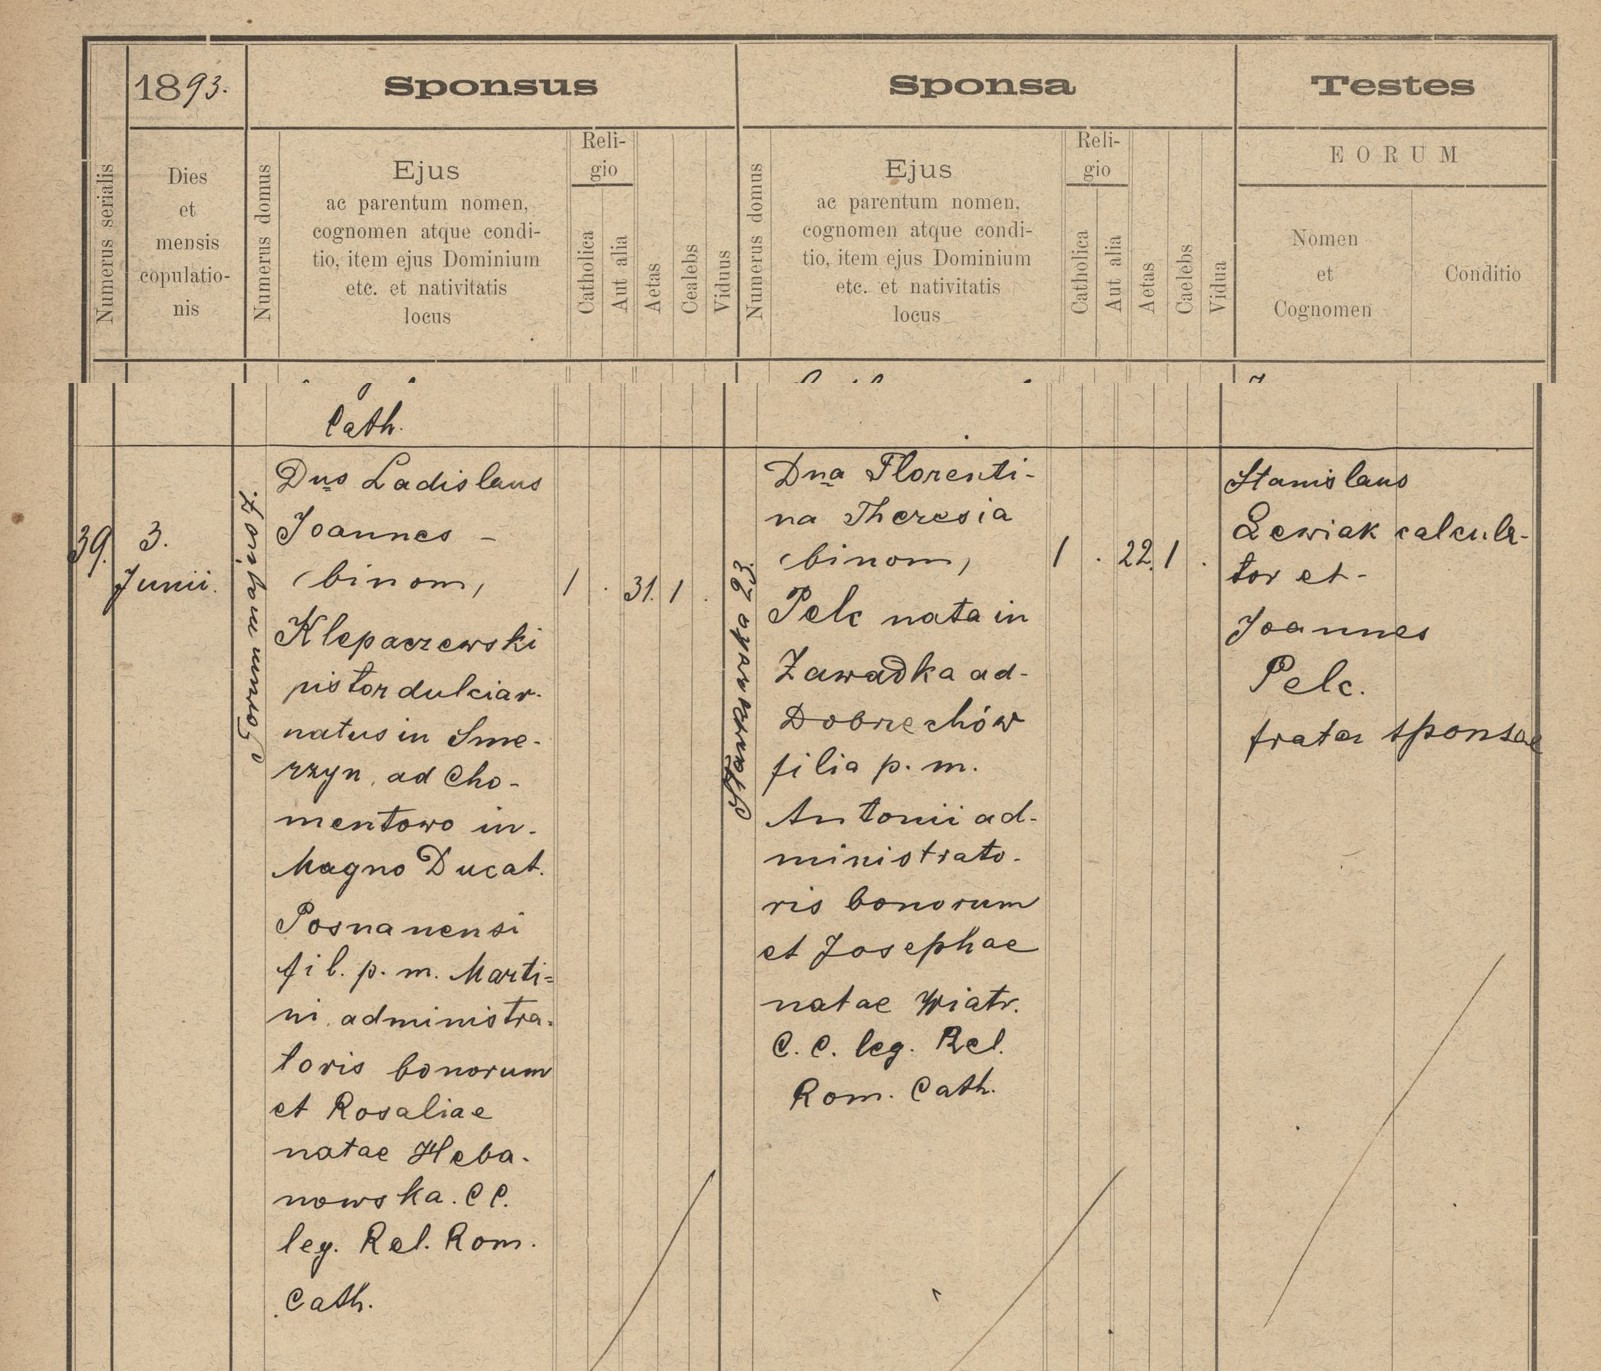 1893.
Sponsus
Sponsa
Testes
Numerus serialis
Dies
et
mensis
copulatio-
nis
Numerus domus
Ejus
ac parentum nomen,
cognomen atque condi-
tio, item ejus Dominium
etc. et nativitatis
locus
Reli-
gio
Catholica
Aut alia
Aetas
Cealebs
Viduus
Numerus domus
Ejus
ac parentum nomen,
cognomen atque condi-
tio, item ejus Dominium
etc. et nativitatis
locus
Reli-
gio
Catholica
Aut alia
Aetas
Caelebs
Vidua
EORUM
Nomen
et
Cognomen
Conditio
Cath.
39.
3.
Junii.
Forum
Dnus Ladislaus
Joannes -
(binom,
Klepaczewski
pistor dulciar.
natus in Sme-
rzyn, ad Cho-
mentowo in-
Magno Ducat.
Posnanensi
fil. p. m. Marti=
ni, administra-
toris bonorum
et Rosaliae
natae Heba-
nowska. CC.
leg. Rel. Rom.
Cath.
1 . 31. 1 .
63
Dna Florenti-
na Theresia
(binom,
Pelc nata in
Zawadka ad-
Dobrzechów
filia p. m.
Antonii ad-
ministrato-
ris bonorum
et Josephae
natae Wiatr.
C. C. leg. Rel.
Rom. Cath.
1 . 22. 1 .
Stanislaus
Lewiak calcula-
tor et -
Joannes
Pelc.
frater sponsae